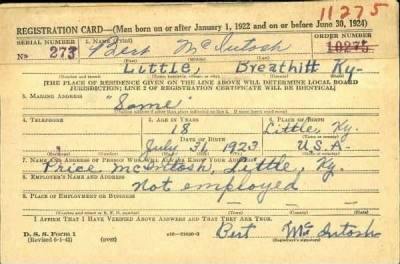 11275
REGISTRATION CARD—(Men born on or after January 1, 1922 and on or before June 30, 1924)
SERIAL NUMBER 1. NAME (Print) ORDER NUMBER
No 273 Bert McIntosh 10275
Little, Breathitt Ky-
(THE PLACE OF RESIDENCE GIVEN ON THE LINE ABOVE WILL DETERMINE LOCAL BOARD
JURISDICTION; LINE 2 OF REGISTRATION CERTIFICATE WILL BE IDENTICAL)
3. MAILING ADDRESS
"Same"
4. TELEPHONE 5. AGE IN YEARS 6. PLACE OF BIRTH
18 Little, Ky.
DATE OF BIRTH
July 31, 1923 U.S.A.
7. NAME AND ADDRESS OF PERSON WHO WILL ALWAYS KNOW YOUR ADDRESS
Price McIntosh, Little, Ky.
8. EMPLOYER'S NAME AND ADDRESS
Not employed
9. PLACE OF EMPLOYMENT OR BUSINESS
I AFFIRM THAT I HAVE VERIFIED ABOVE ANSWERS AND THAT THEY ARE TRUE.
D. S. S. Form 1
(Revised 6-1-42) (over) Bert McIntosh
(Registrant's signature)